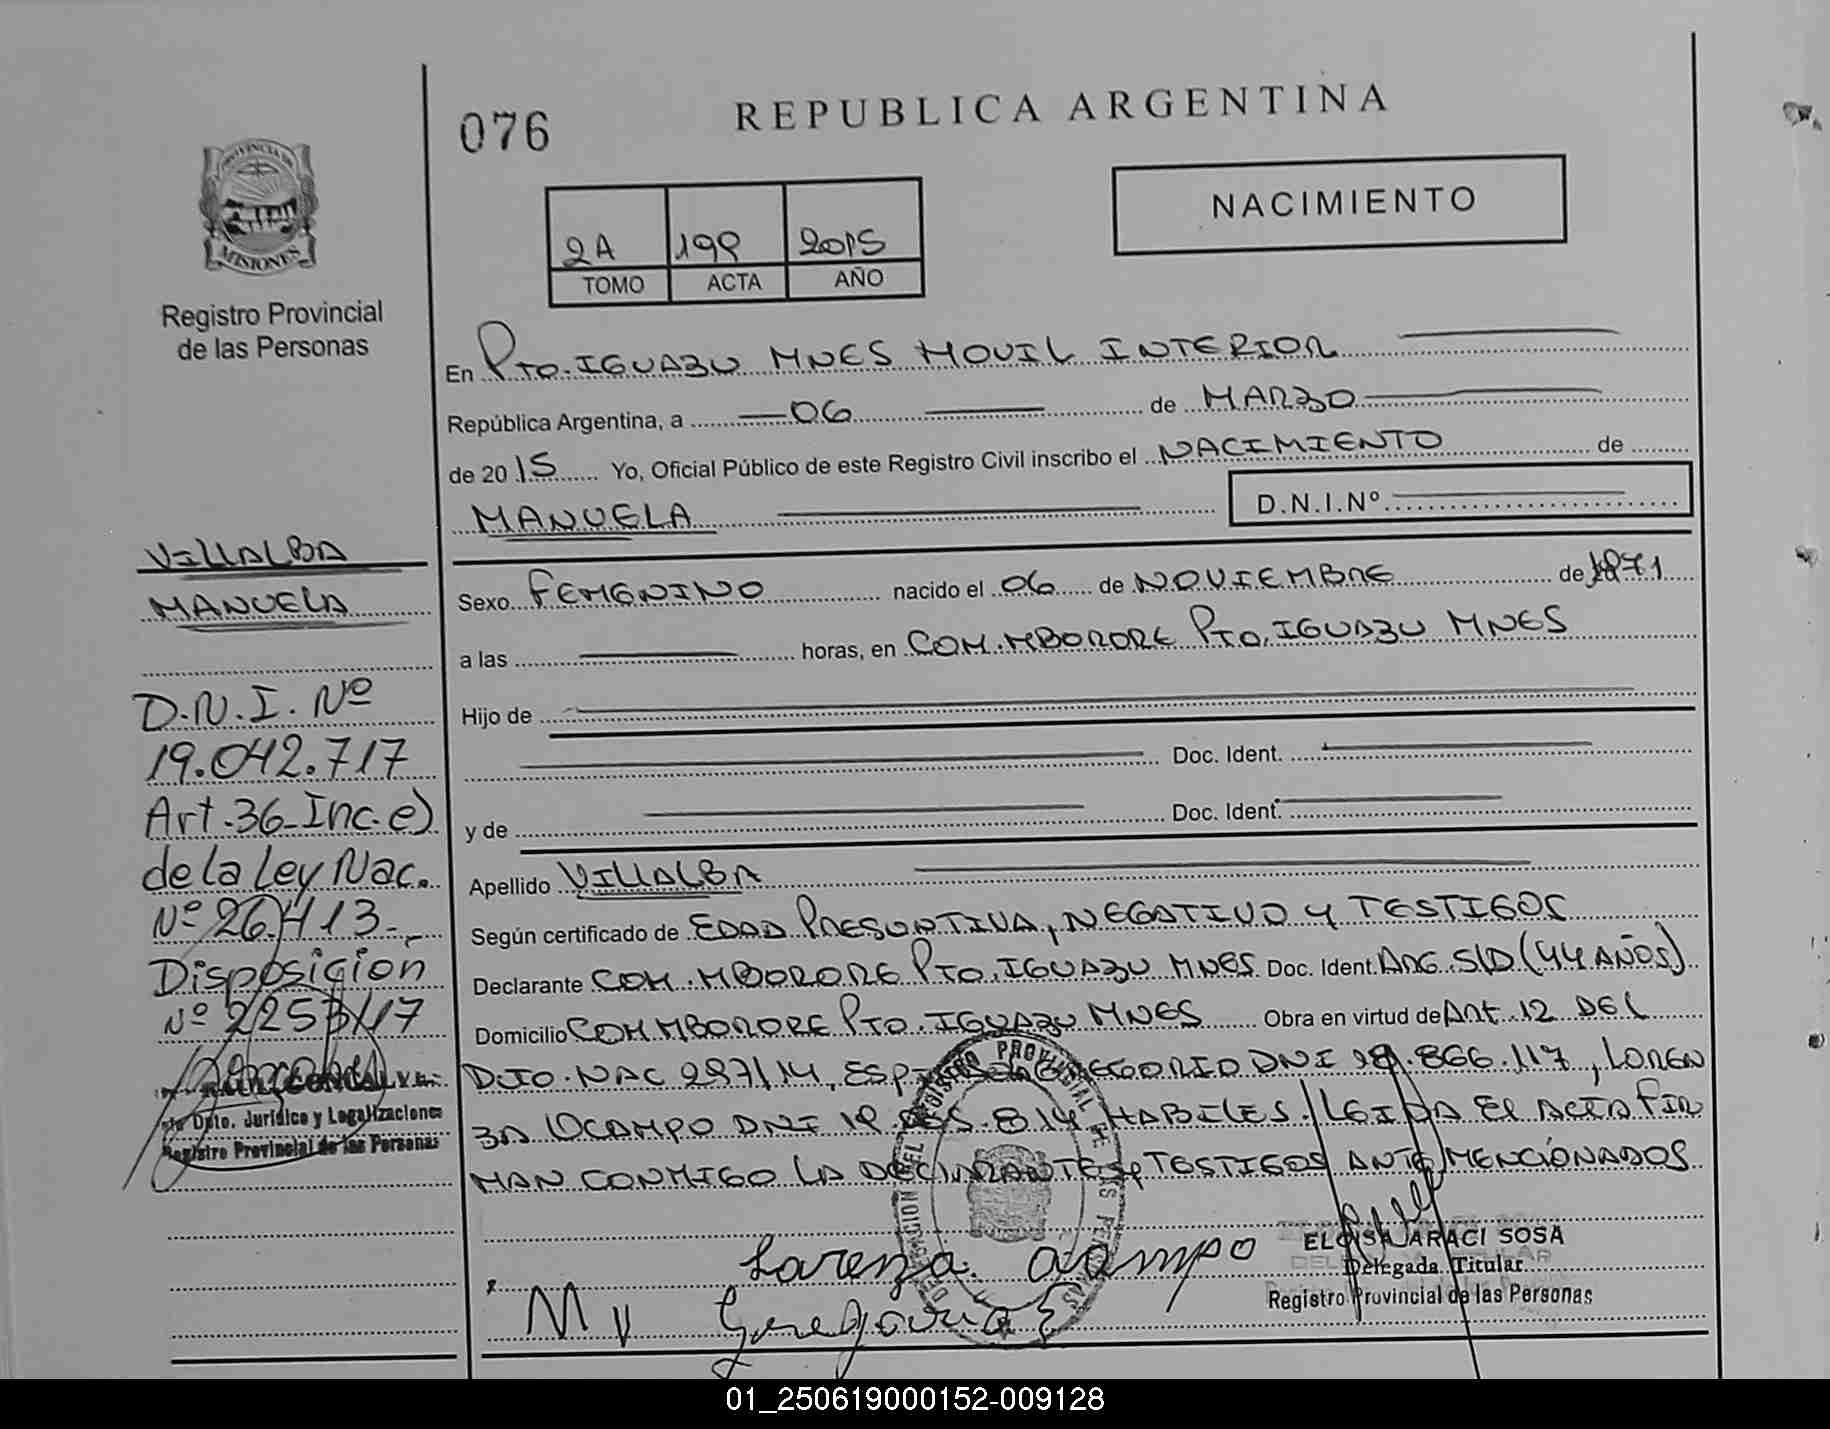 REPUBLICA ARGENTINA
076
NACIMIENTO
PROVINCIA DE
MISIONES
Registro Provincial
de las Personas
2A 199 2015
TOMO ACTA AÑO
En Pto. IGUAZU MNES MOVIL INTERIOR
República Argentina, a 06 de MARZO
de 2015 Yo, Oficial Público de este Registro Civil inscribo el NACIMIENTO de
MANUELA D.N.I.Nº
VILLALBA
MANUELA
D.N.I. Nº
19.042.717
Art.36-Inc.e)
de la Ley Nac.
Nº 26.413-
Disposición
Nº 2257/17
Dpto. Jurídico y Legalizaciones
Registro Provincial de las Personas
Sexo FEMENINO nacido el 06 de NOVIEMBRE de 1971
a las horas, en COM. MBORORE Pto. IGUAZU MNES
Hijo de
Doc. Ident.
y de Doc. Ident.
Apellido VILLALBA
Según certificado de EDAD PRESUNTIVA, NEGATIVO Y TESTIGOS
Declarante COM. MBORORE Pto. IGUAZU MNES Doc. Ident ARG. S/D (44 AÑOS)
Domicilio COM MBORORE Pto. IGUAZU MNES Obra en virtud de Art 12 DEL
DTO. NAC 297/14, GREGORIO DNI .866.117, LOREN
ZA OCAMPO DNI HABILES. LEIDA EL ACTA FIR
MAN CONMIGO LA DECLARANTE y TESTIGOS ANTE MENCIONADOS
Lorenza Ocampo
M V Gregorio E
DELEGACION DEL REGISTRO PROVINCIAL DE LAS PERSONAS
ELOISA ARACI SOSA
Delegada Titular
Registro Provincial de las Personas
01_250619000152-009128